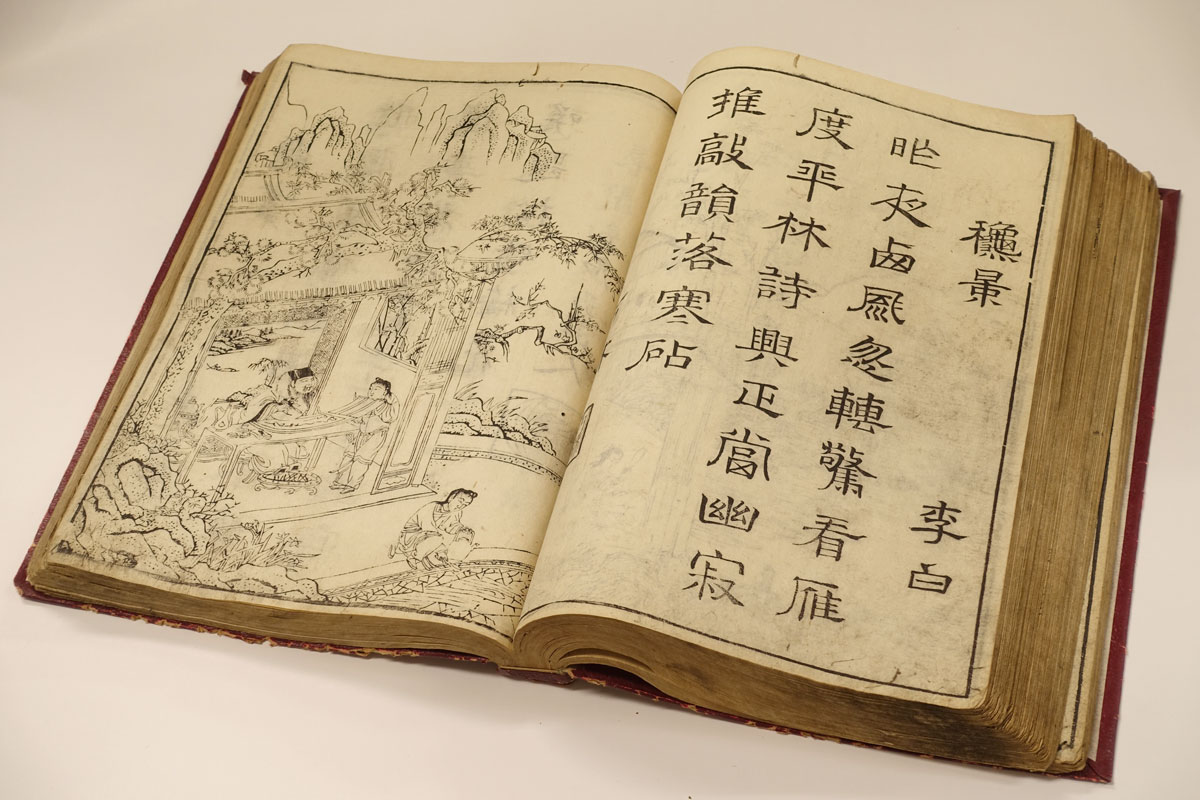 龝景
李白
昨夜卥風忽轉驚看雁
度平林詩興正當幽寂
推敲韻落寒砧